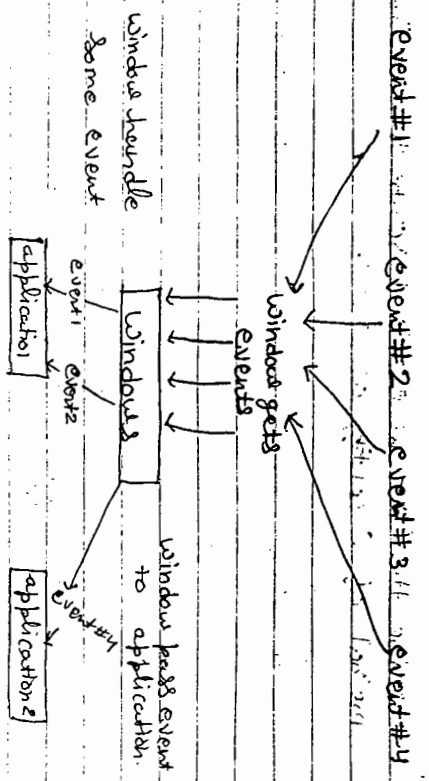 event #1 event #2 event #3 event #4
Window gets
events
Window handle
some event
Windows
Window pass event
to application.
event1 event2 event#4
application1
application2